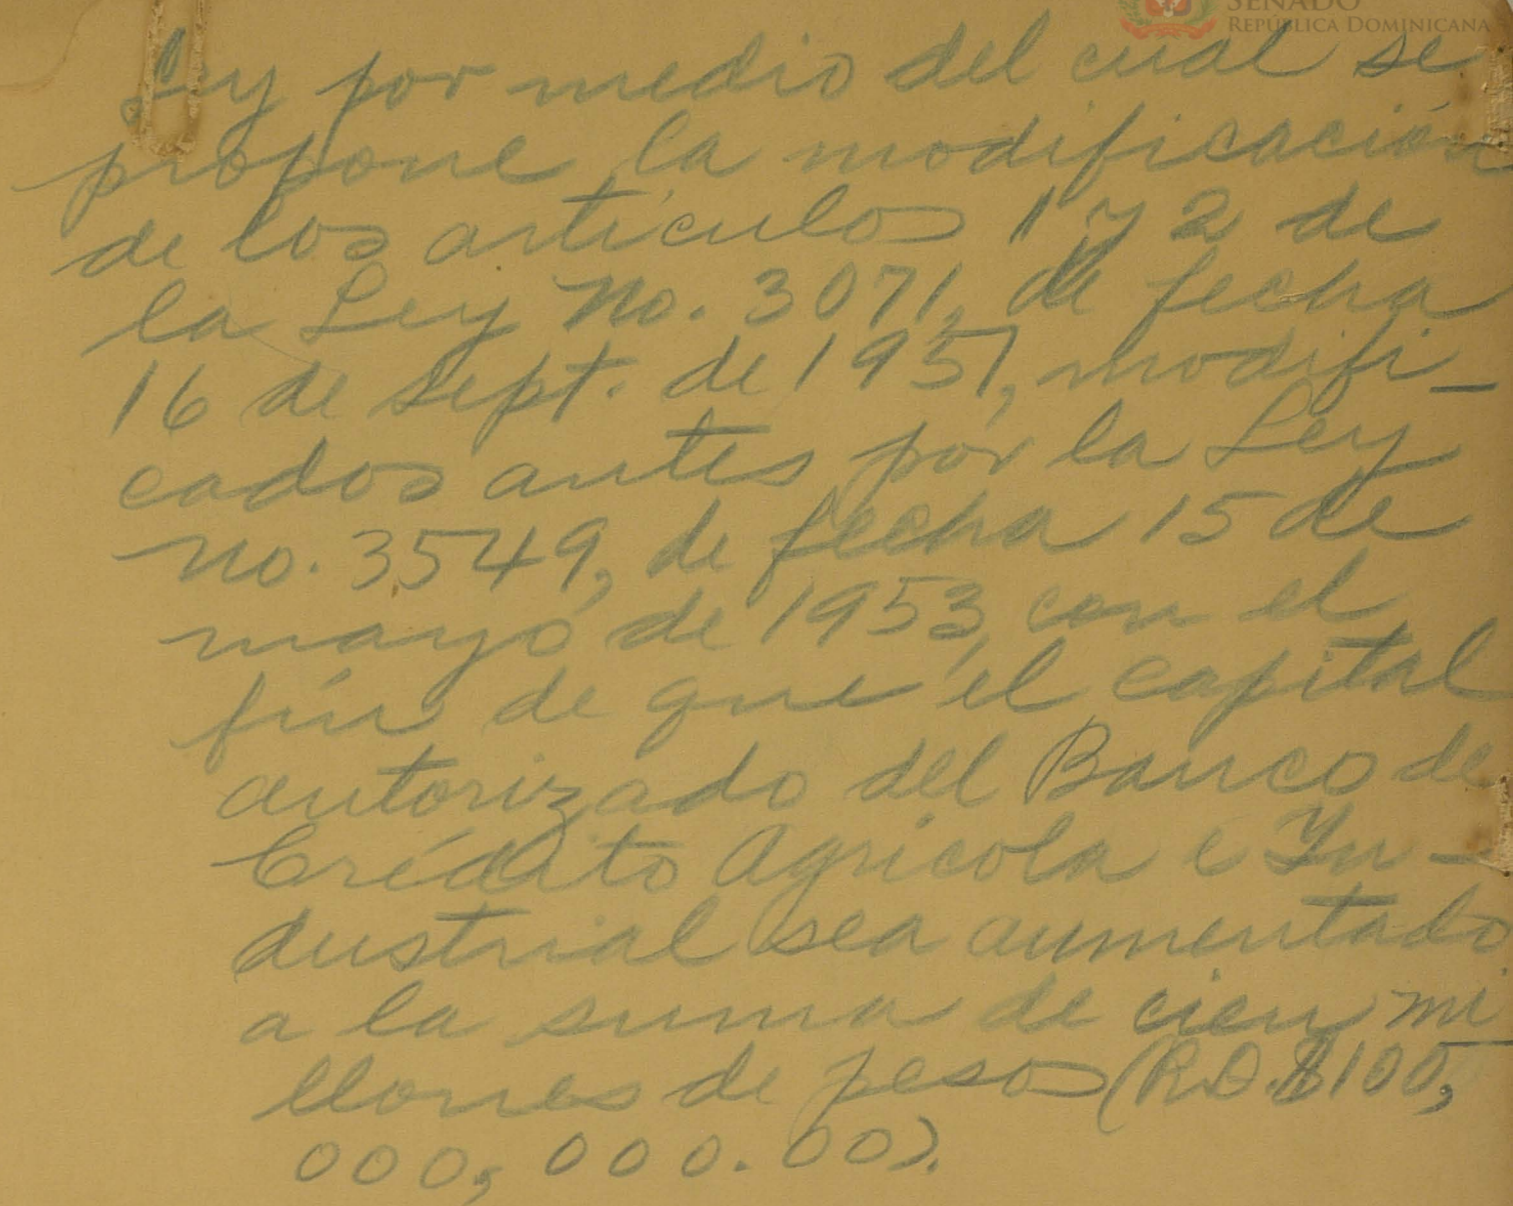 SENADO
REPÚBLICA DOMINICANA
Ley por medio del cual se
propone la modificación
de los artículos 1 y 2 de
la Ley No. 3071, de fecha
16 de sept. de 1951, modifi-
cados antes por la Ley
No. 3549, de fecha 15 de
mayo de 1953, con el
fin de que el capital
autorizado del Banco de
Crédito Agricola e In-
dustrial sea aumentado
a la suma de cien mi
llones de pesos (RD.$100,
000,000.00).